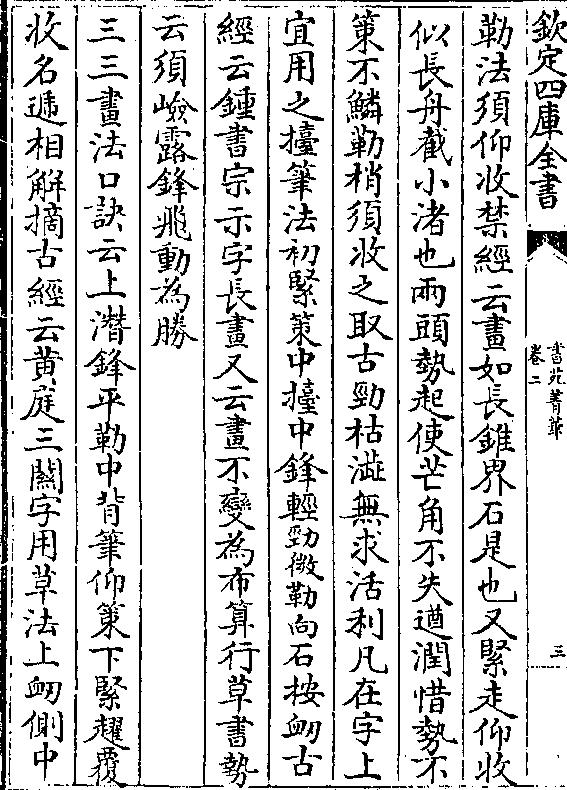 欽定四庫全書
書苑菁華
卷二
三
勒法須仰收禁經云畫如長錐界石是也又緊走仰收
似長舟截小渚也兩頭勢起使芒角不失遒潤惜勢不
策不鱗勒梢須收之取古勁枯澁無求活利凡在字上
宜用之擡筆法初緊策中擡中鋒輕勁微勒向右按衂古
經云鍾書宗示字長畫又云畫不變為布算行草書勢
云須嶮露鋒飛動為勝
三三畫法口訣云上潛鋒平勒中背筆仰策下緊趯覆
收名遞相解摘古經云黄庭三關字用草法上衂側中